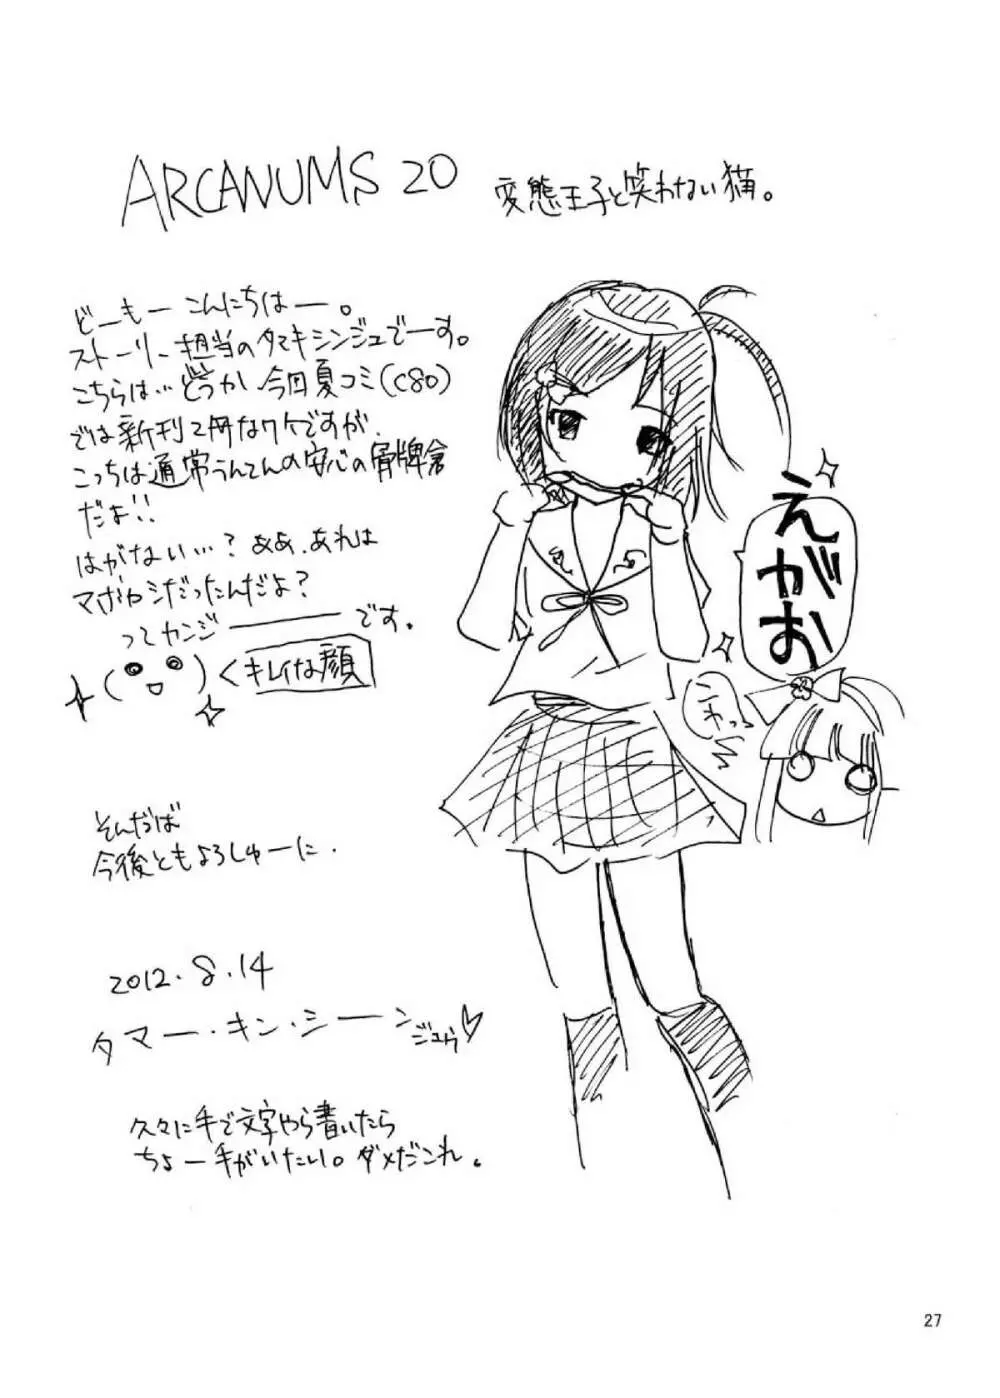 ARCANUMS 20
変態王子と笑わない猫。
どーもー こんにちはー。
ストーリー担当のタマキシンジュでーす。
こちらは…どうか 今回夏コミ(C80)
では新刊2冊なワケですが、
こっちは通常うんてんの安心の骨牌倉
だよ!!
はがない…? ああ、あれは
マボロシだったんだよ?
ってカンジーーーです。
キレイな顔
えがお
これっ
そんだば
今後ともよろしゅーに.
2012.8.14
タマー・キン・シーン
ジュウ♡
久々に手で文字やら書いたら
ちょー手がいたい。ダメだこれ。
27